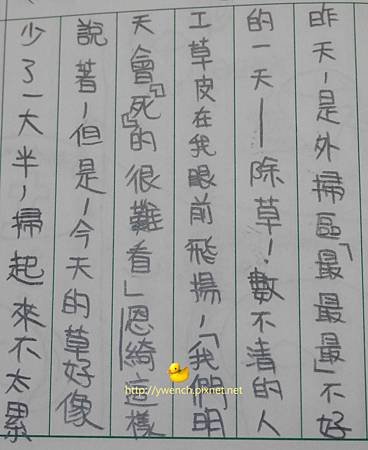 昨天，是外掃區「最最最」不好
的一天——除草！數不清的人
工草皮在我眼前飛揚，「我們明
天會『死』的很難看」恩綺這樣
說著，但是，今天的草好像
少了一大半，掃起來不太累
http://ywench.pixnet.net